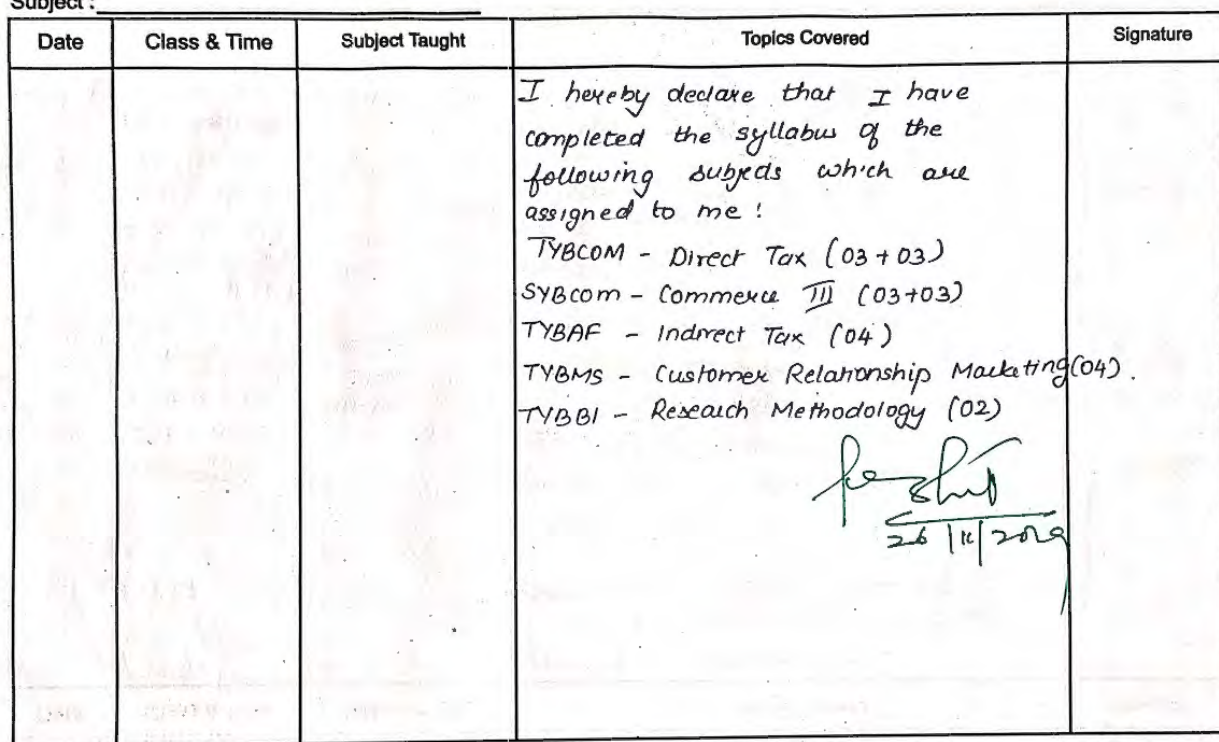 Subject :
Date Class & Time Subject Taught Topics Covered Signature
I hereby declare that I have
completed the syllabus of the
following subjects which are
assigned to me :
TYBCOM - Direct Tax (03 + 03)
SYBcom - Commerce III (03+03)
TYBAF - Indirect Tax (04)
TYBMS - Customer Relationship Marketing (04).
TYBBI - Research Methodology (02)
26/11/2019